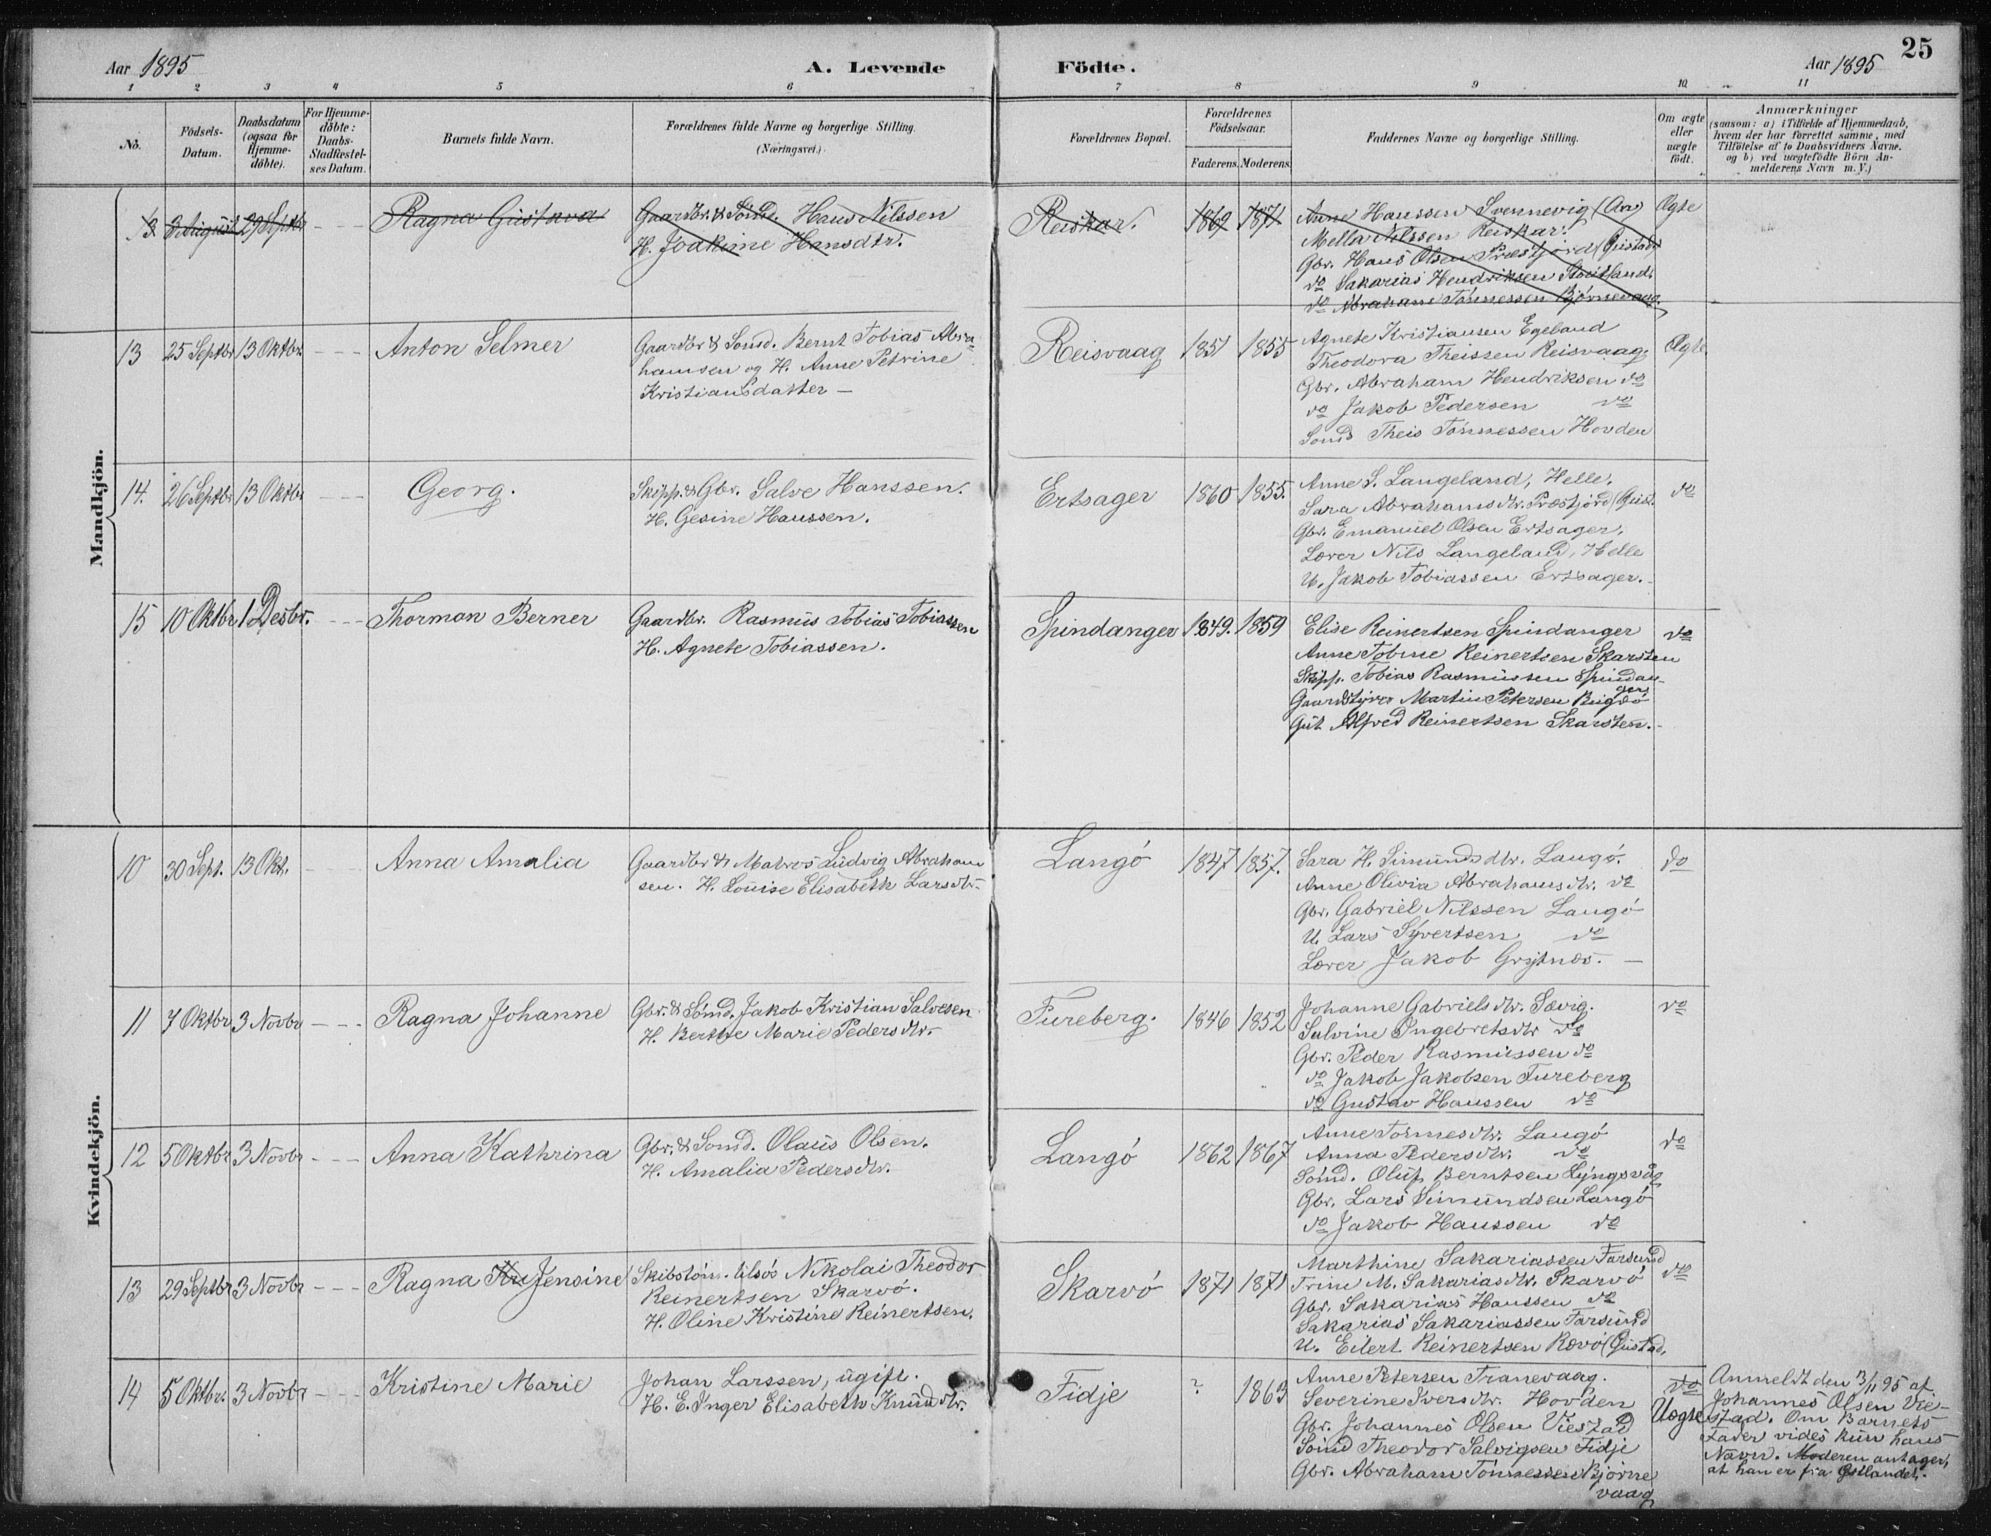 25
Aar 1895
A. Levende
Födte.
Aar 1895
1 2 3 4 5 6 7 8 9 10 11
No.
Födsels-
Datum.
Daabsdatum
(ogsaa for
Hjemme-
döbte).
For Hjemme-
döbte:
Daabs-
Stadfæstel-
ses Datum.
Barnets fulde Navn.
Forældrenes fulde Navne og borgerlige Stilling.
(Næringsvei.)
Forældrenes Bopæl.
Forældrenes
Födselsaar.
Faderens. Moderens.
Faddernes Navne og borgerlige Stilling.
Om ægte
eller
uægte
födt.
Anmærkninger
(saasom: a) i Tilfælde af Hjemmedaab,
hvem der har forrettet samme, med
Tilföielse af to Daabsvidners Navne.
og b) ved uægtefödte Börn An-
melderens Navn m. V.)
Mandkjön.
13 3 August 29 Septbr Ragna Gustava
Gaardbr. & Sømd. Hans Nilssen
H. Joakime Hansdtr.
Reiskar. 1869 1871
Anne Hanssen Svennevig (Ara)
Mella Nilssen Reiskar.
Gbr. Hans Olsen Præstjord (Gustad)
do Sakarias Hendriksen Stoutland.
do Abraham Tønnessen Bjørnevaag.
Ægte
13 25 Septbr 13 Oktbr. Anton Selmer
Gaardbr & Sømd. Bernt Tobias Abra-
hamsen og H. Anne Petrine
Kristiansdatter —
Reisvaag 1851 1855
Agnete Kristiansen Egeland
Theodora Theissen Reisvaag.
Gbr. Abraham Hendriksen do
do Jakob Pedersen do
Sømd Theis Tønnessen Hovden
Ægte
14. 26 Septbr 13 Oktbr. Georg.
Skipp. & Gbr. Salve Hanssen.
H. Gesine Hanssen.
Ertsager 1860 1855.
Anne S. Langeland, Helle.
Sara Abrahamsdtr. Præstjord (Gust.
Gbr. Emanuel Olsen Ertsager.
Lærer Nils Langeland, Helle
U. Jakob Tobiassen Ertsager.
do
15 10 Oktbr. 1 Desbr. Thorman Berner
Gaardbr. Rasmus Tobias Tobiassen
H. Agnete Tobiassen.
Spindanger 1849. 1859
Elise Reinertsen Spindanger
Anne Tobine Reinertsen Skarsten
Skipp. Tobias Rasmussen Spindan-
ger
Gaardstyrer Martin Petersen Bugdø
Gut Alfred Reinertsen Skarsten.
do
Kvindekjön.
10 30 Sept. 13 Okt. Anna Amalia
Gaardbr & Matros Ludvig Abraham
sen. H. Louise Elisabeth Larsdtr.
Langö 1847 1857.
Sara H. Simundsdtr. Langö.
Anne Olivia Abrahamsdtr. do
Gbr. Gabriel Nilssen Langö
U. Lars Syvertsen do
Lærer Jakob Grytnæs. —
do
11 7 Oktbr 3 Novbr Ragna Johanne
Gbr. & Sömd. Jakob Kristian Salvesen
H. Berthe Marie Pedersdtr.
Fureberg. 1846 1852
Johanne Gabrielsdtr. Sævig.
Salvine Ingebretsdtr do
Gbr. Peder Rasmussen do
do Jakob Jakobsen Fureberg
do Gustav Hanssen do
do
12 5 Oktbr 3 Novbr Anna Kathrina
Gbr. & Sømd. Olaus Olsen.
H. Amalia Pedersdtr.
Langö 1862 1867
Anne Tormesdtr. Langö
Anna Pedersdtr. do
Sömd. Oluf Berntsen Lyngsvåg
Gbr. Lars Simundsen Langö
do Jakob Hanssen do
do
13 29 Septbr 3 Novbr Ragna Jensine
Skibstön. Nikolai Theodor
Reinertsen Skarvö.
H. Oline Kristine Reinertsen.
Skarvö 1871 1871
Marthine Sakariassen Farsund
Trine M. Sakariasdtr. Skarvö
Gbr. Sakarias Hanssen do
Sakarias Sakariassen Farsund
U. Eilert Reinertsen Rævö (Gustad.
do
14 5 Oktbr. 3 Novbr Kristine Marie
Johan Larssen, ugift.
H. E. Inger Elisabeth Knudsdtr.
Fidje ? 1863
Anne Petersen Tranevaag.
Severine Iversdtr. Hovden
Gbr. Johannes Olsen Viestad
Sömd Theodor Salvigsen Fidje
Gbr. Abraham Tönnessen Bjørne
vaag
do
Uægte
Anmeldt den 3/11 95 af
Johannes Olsen Vie-
stad. Om Barnets
Fader vides kun hans
Navn. Moderen antager,
at han er fra Østlandet.